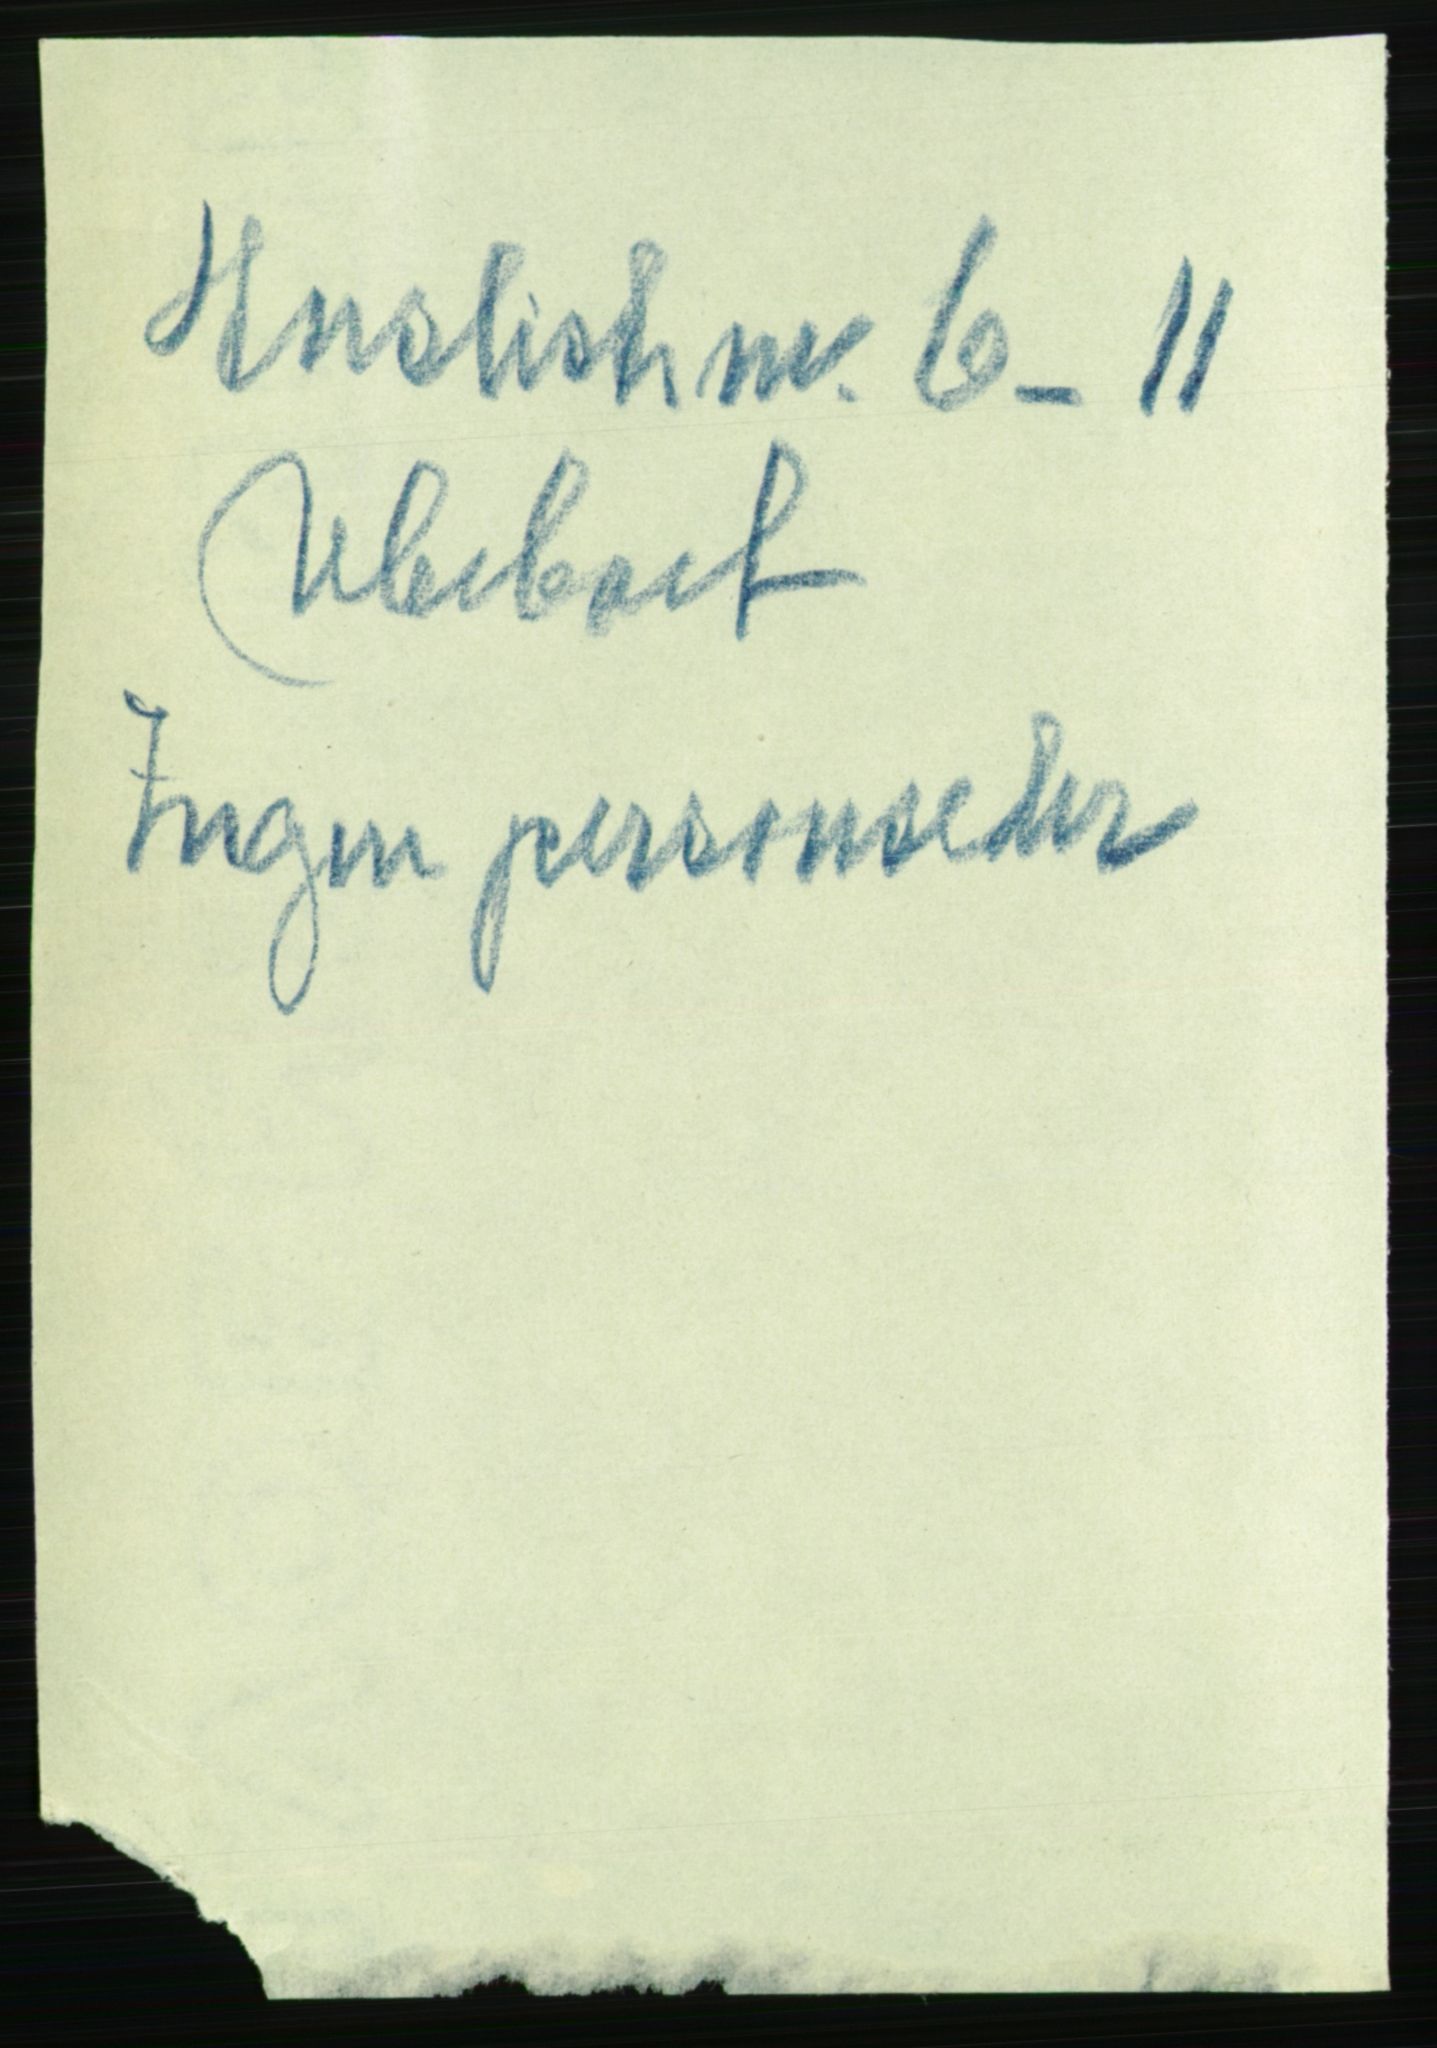 Husliste nr. 6-11
Ubebodd
Ingen personsedler